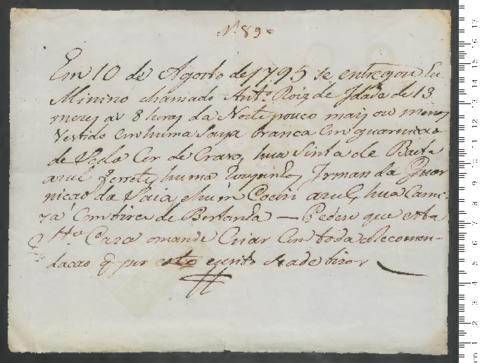 N.º 89
Em 10 de Agosto de 1795 se entregou hu
Minino chamado Ant.º Roiz de Idade de 13
mezes as 8 horas da Noite pouco mais ou menos
Vestido em huma Saya branca com guarnicao
de Seda Cor de Cravo, hua Sinta de Baeta
azul ferrete, huma Irman da Guar
nicao da Saia, e hum azul, hua Cami
za Com tira de Bertanha — Pedese que esta
S.ta Caza o mande Criar Com toda a Recomen
dacao q por este escrito se ade tirar